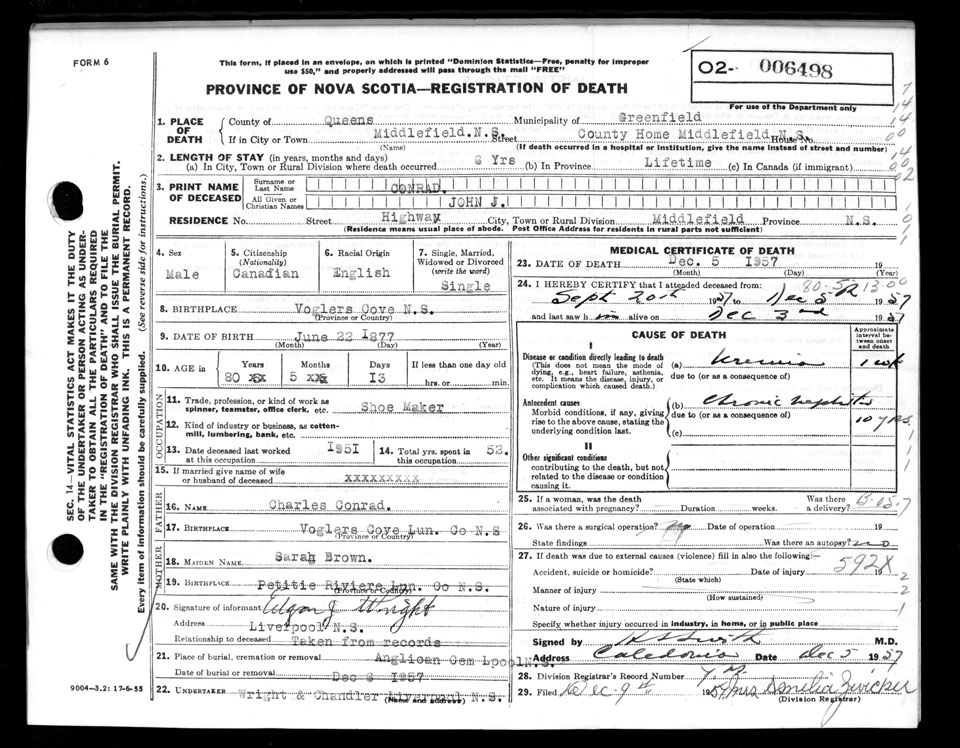 FORM 6
This form, if placed in an envelope, on which is printed "Dominion Statistics—Free, penalty for improper
use $50," and properly addressed will pass through the mail "FREE"
O2- 006498
For use of the Department only
PROVINCE OF NOVA SCOTIA—REGISTRATION OF DEATH
1. PLACE OF DEATH
County of Queens Municipality of Greenfield
If in City or Town Middlefield.N.S. Street County Home Middlefield N.S. House No.
(Name) (If death occurred in a hospital or institution, give the name instead of street and number)
2. LENGTH OF STAY (in years, months and days)
(a) In City, Town or Rural Division where death occurred 6 Yrs (b) In Province Lifetime (c) In Canada (if immigrant)
3. PRINT NAME OF DECEASED
Surname or Last Name CONRAD.
All Given or Christian Names JOHN J.
RESIDENCE No. Street Highway City, Town or Rural Division Middlefield Province N.S.
(Residence means usual place of abode. Post Office Address for residents in rural parts not sufficient)
4. Sex
Male
5. Citizenship
(Nationality)
Canadian
6. Racial Origin
English
7. Single, Married,
Widowed or Divorced
(write the word)
Single
8. BIRTHPLACE Voglers Cove N.S.
(Province or Country)
9. DATE OF BIRTH June 22 1877
(Month) (Day) (Year)
10. AGE in
Years Months Days If less than one day old
80 5 13 hrs. or min.
OCCUPATION
11. Trade, profession, or kind of work as
spinner, teamster, office clerk, etc. Shoe Maker
12. Kind of industry or business, as cotton-
mill, lumbering, bank, etc.
13. Date deceased last worked
at this occupation 1951
14. Total yrs. spent in
this occupation 52.
15. If married give name of wife
or husband of deceased xxxxxxxxx
FATHER
16. NAME Charles Conrad.
17. BIRTHPLACE Voglers Cove Lun. Co N.S
(Province or Country)
MOTHER
18. MAIDEN NAME Sarah Brown.
19. BIRTHPLACE Petitie Riviere Lun. Co N.S.
(Province or Country)
20. Signature of informant
Address Liverpool N.S.
Relationship to deceased Taken from records
21. Place of burial, cremation or removal Anglican Cem Lpool N.S.
Date of burial or removal Dec 6 1957
22. UNDERTAKER Wright & Chandler Liverpool N.S.
(Name and address)
9004—3.2: 17-6-55
MEDICAL CERTIFICATE OF DEATH
23. DATE OF DEATH Dec. 5 1957 19
(Month) (Day) (Year)
24. I HEREBY CERTIFY that I attended deceased from:
Sept 20th 1957 to Dec 5th 1957
and last saw him alive on Dec 3rd 1957
CAUSE OF DEATH
Approximate interval between onset and death
I
Disease or condition directly leading to death
(This does not mean the mode of
dying, e.g., heart failure, asthenia,
etc. It means the disease, injury, or
complication which caused death.)
(a) Uremia 1 wk
due to (or as a consequence of)
Antecedent causes
Morbid conditions, if any, giving
rise to the above cause, stating the
underlying condition last.
(b) Chronic nephritis 10 yrs.
due to (or as a consequence of)
(c)
II
Other significant conditions
contributing to the death, but not
related to the disease or condition
causing it.
25. If a woman, was the death
associated with pregnancy? Duration weeks.
Was there
a delivery?
26. Was there a surgical operation? no Date of operation 19
State findings Was there an autopsy? no
27. If death was due to external causes (violence) fill in also the following:—
592X
Accident, suicide or homicide? Date of injury 19
(State which)
Manner of injury
(How sustained)
Nature of injury
Specify, whether injury occurred in industry, in home, or in public place
Signed by M.D.
Address Caledonia Date Dec 5 1957
28. Division Registrar's Record Number
29. Filed Dec. 9th 1957 Mrs Amelia Zwicker
(Division Registrar)
SEC. 14—VITAL STATISTICS ACT MAKES IT THE DUTY
OF THE UNDERTAKER OR PERSON ACTING AS UNDER-
TAKER TO OBTAIN ALL THE PARTICULARS REQUIRED
IN THE "REGISTRATION OF DEATH" AND TO FILE THE
SAME WITH THE DIVISION REGISTRAR WHO SHALL ISSUE THE BURIAL PERMIT.
WRITE PLAINLY WITH UNFADING INK. THIS IS A PERMANENT RECORD.
Every item of information should be carefully supplied. (See reverse side for instructions.)